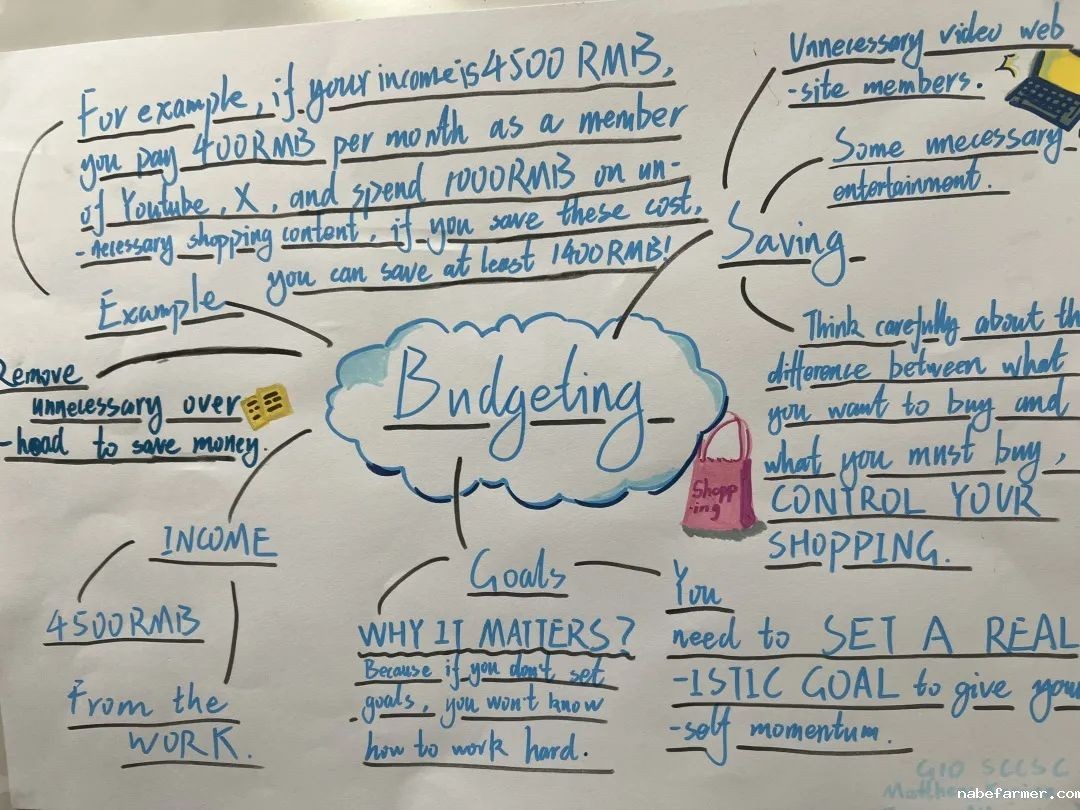 For example, if your income is 4500 RMB,
you pay 400RMB per month as a member
of Youtube, X, and spend 1000RMB on un-
-necessary shopping content, if you save these cost,
you can save at least 1400RMB!
Example
Remove
unnecessary over
-head to save money.
INCOME
4500RMB
From the
WORK.
Budgeting
Unnecessary video web
-site members.
Some unecessary
entertainment.
Saving
Think carefully about th
difference between what
you want to buy and
what you must buy,
CONTROL YOUR
SHOPPING.
Shopp
-ing
Goals
WHY IT MATTERS?
Because if you don't set
goals, you won't know
how to work hard.
You
need to SET A REAL
-ISTIC GOAL to give your
-self momentum.
G10 SCCSC
nabefarmer.com